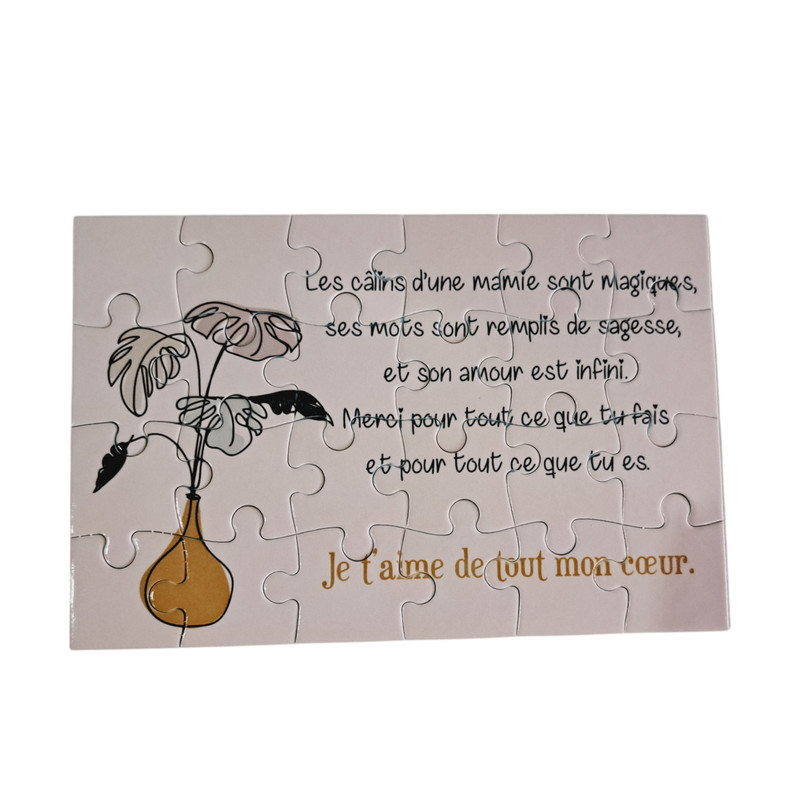 Les câlins d'une mamie sont magiques,
ses mots sont remplis de sagesse,
et son amour est infini.
Merci pour tout ce que tu fais
et pour tout ce que tu es.
Je t'aime de tout mon cœur.